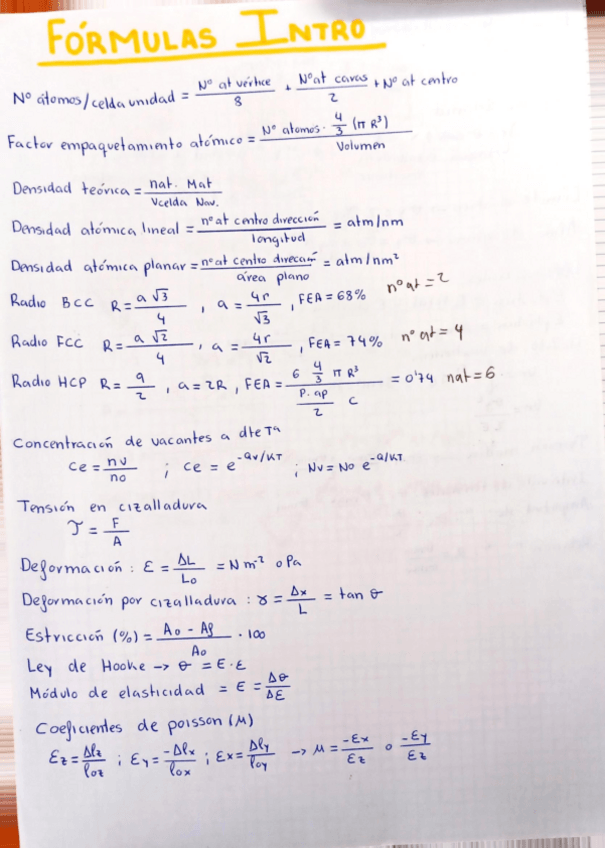 FÓRMULAS INTRO
Nº átomos/celda unidad = Nº at vértice / 8 + Nº at caras / 2 + Nº at centro
Factor empaquetamiento atómico = Nº atomos · 4/3 (π R³) / Volumen
Densidad teórica = nat. Mat / Vcelda Nav.
Densidad atómica lineal = nº at centro dirección / longitud = atm/nm
Densidad atómica planar = nº at centro direcan / área plano = atm/nm²
Radio BCC R = a √3 / 4 , a = 4r / √3 , FEA = 68% nº at = 2
Radio FCC R = a √2 / 4 , a = 4r / √2 , FEA = 74% nº at = 4
Radio HCP R = a / 2 , a = 2R , FEA = 6 4/3 π R³ / (P. ap / 2 C) = 0'74 nat = 6
Concentración de vacantes a dte Tª
Ce = nv / no ; Ce = e^-Qv/KT ; Nv = No e^-Q/KT
Tensión en cizalladura
τ = F / A
Deformación : ε = ΔL / Lo = N m⁻² o Pa
Deformación por cizalladura : γ = Δx / L = tan θ
Estricción (%) = Ao - Af / Ao · 100
Ley de Hooke -> σ = E · ε
Módulo de elasticidad = E = Δσ / Δε
Coeficientes de poisson (μ)
εz = Δlz / loz ; εy = -Δlx / lox ; εx = Δly / loy -> μ = -εx / εz o -εy / εz